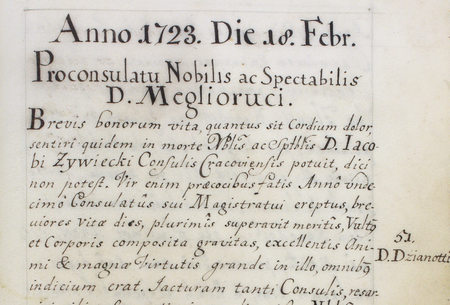 Anno 1723. Die 18. Febr.
Proconsulatu Nobilis ac Spectabilis
D. Meglioruci.
Brevis bonorum vita, quantus sit Cordium dolor,
sentiri quidem in morte Nblis ac Sptblis D. Iaco-
bi Zywiecki Consulis Cracoviensis potuit, dici
non potest. Vir enim præcocibus fatis Anno vnde-
cimo Consulatûs sui Magistratui ereptus, bre-
uiores vitæ dies, plurimis superavit meritis, Vultq
et Corporis composita gravitas, excellentis Ani-
mi & magnæ Virtutis grande in illo, omnibq
indicium erat. Jacturam tanti Consulis, resar-
51.
D. Dzianotti